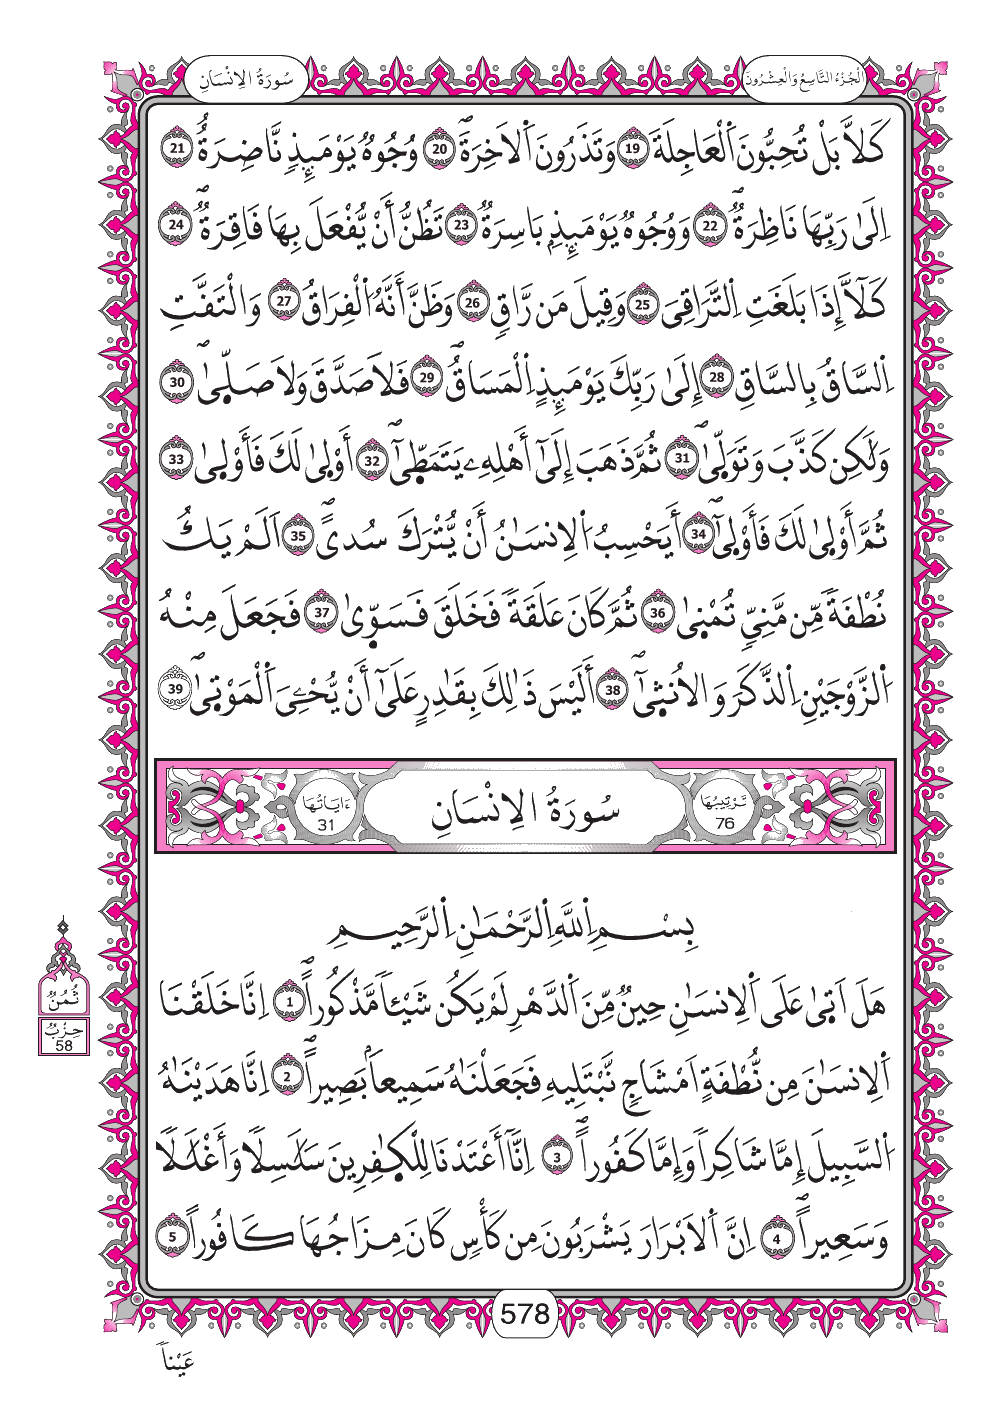 سُورَةُ الِانْسَانِ
الْجُزْءُ التَّاسِعُ وَالْعِشْرُونَ
كَلَّا بَلْ تُحِبُّونَ اَ۬لْعَاجِلَةَ 19 وَتَذَرُونَ اَ۬لَاخِرَةَۖ 20 وُجُوهٞ يَوْمَئِذٖ نَّاضِرَةٌ 21
اِلَىٰ رَبِّهَا نَاظِرَةٞۖ 22 وَوُجُوهٞ يَوْمَئِذِۢ بَاسِرَةٞ 23 تَظُنُّ أَنْ يُّفْعَلَ بِهَا فَاقِرَةٞۖ 24
كَلَّآ إِذَا بَلَغَتِ اِ۬لتَّرَاقِيَ 25 وَقِيلَ مَن رَّاقٖ 26 وَظَنَّ أَنَّهُ اُ۬لْفِرَاقُ 27 وَالْتَفَّتِ
اِ۬لسَّاقُ بِالسَّاقِ 28 إِلَىٰ رَبِّكَ يَوْمَئِذٍ اِ۬لْمَسَاقُۖ 29 فَلَا صَدَّقَ وَلَا صَلّ۪ىٰۖ 30
وَلَٰكِن كَذَّبَ وَتَوَلّ۪ىٰۖ 31 ثُمَّ ذَهَبَ إِلَىٰٓ أَهْلِهِۦ يَتَمَطّ۪ىٰٓۖ 32 أَوْل۪ىٰ لَكَ فَأَوْل۪ىٰ 33
ثُمَّ أَوْل۪ىٰ لَكَ فَأَوْل۪ىٰٓۖ 34 أَيَحْسِبُ اُ۬لِانسَٰنُ أَنْ يُّتْرَكَ سُدىًۖ 35 اَلَمْ يَكُ
نُطْفَةٗ مِّن مَّنِيّٖ تُمْن۪ىٰ 36 ثُمَّ كَانَ عَلَقَةٗ فَخَلَقَ فَسَوّ۪ىٰ 37 فَجَعَلَ مِنْهُ
اُ۬لزَّوْجَيْنِ اِ۬لذَّكَرَ وَالُانث۪ىٰٓۖ 38 أَلَيْسَ ذَٰلِكَ بِقَٰدِرٍ عَلَىٰٓ أَنْ يُّحْـِۧيَ اَ۬لْمَوْت۪ىٰۖ 39
ءَايَاتُهَا 31
سُورَةُ الِانْسَانِ
تَرْتِيبُهَا 76
بِسْمِ اِ۬للَّهِ اِ۬لرَّحْمَٰنِ اِ۬لرَّحِيمِ
هَلَ اَت۪ىٰ عَلَى اَ۬لِانسَٰنِ حِينٞ مِّنَ اَ۬لدَّهْرِ لَمْ يَكُن شَيْـٔاٗ مَّذْكُوراًۖ 1 اِنَّا خَلَقْنَا
اَ۬لِانسَٰنَ مِن نُّطْفَةٍ اَمْشَاجٖ نَّبْتَلِيهِ فَجَعَلْنَٰهُ سَمِيعاَۢ بَصِيراًۖ 2 اِنَّا هَدَيْنَٰهُ
اُ۬لسَّبِيلَ إِمَّا شَاكِراٗ وَإِمَّا كَفُوراًۖ 3 اِنَّآ أَعْتَدْنَا لِلْكٰ۪فِرِينَ سَلَٰسِلاٗ وَأَغْلَٰلاٗ
وَسَعِيراًۖ 4 اِنَّ اَ۬لَابْرَارَ يَشْرَبُونَ مِن كَأْسٖ كَانَ مِزَاجُهَا كَافُوراً 5
ثُمُنٌ
حِزْبٌ
58
578
عَيْناٗ